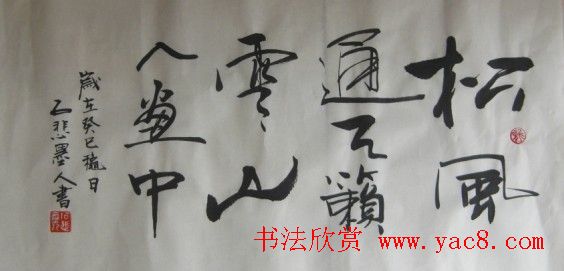 松風
通天籟
雲山
入畫中
歲在癸巳日
悲墨人書
书法欣赏 www.yac8.com